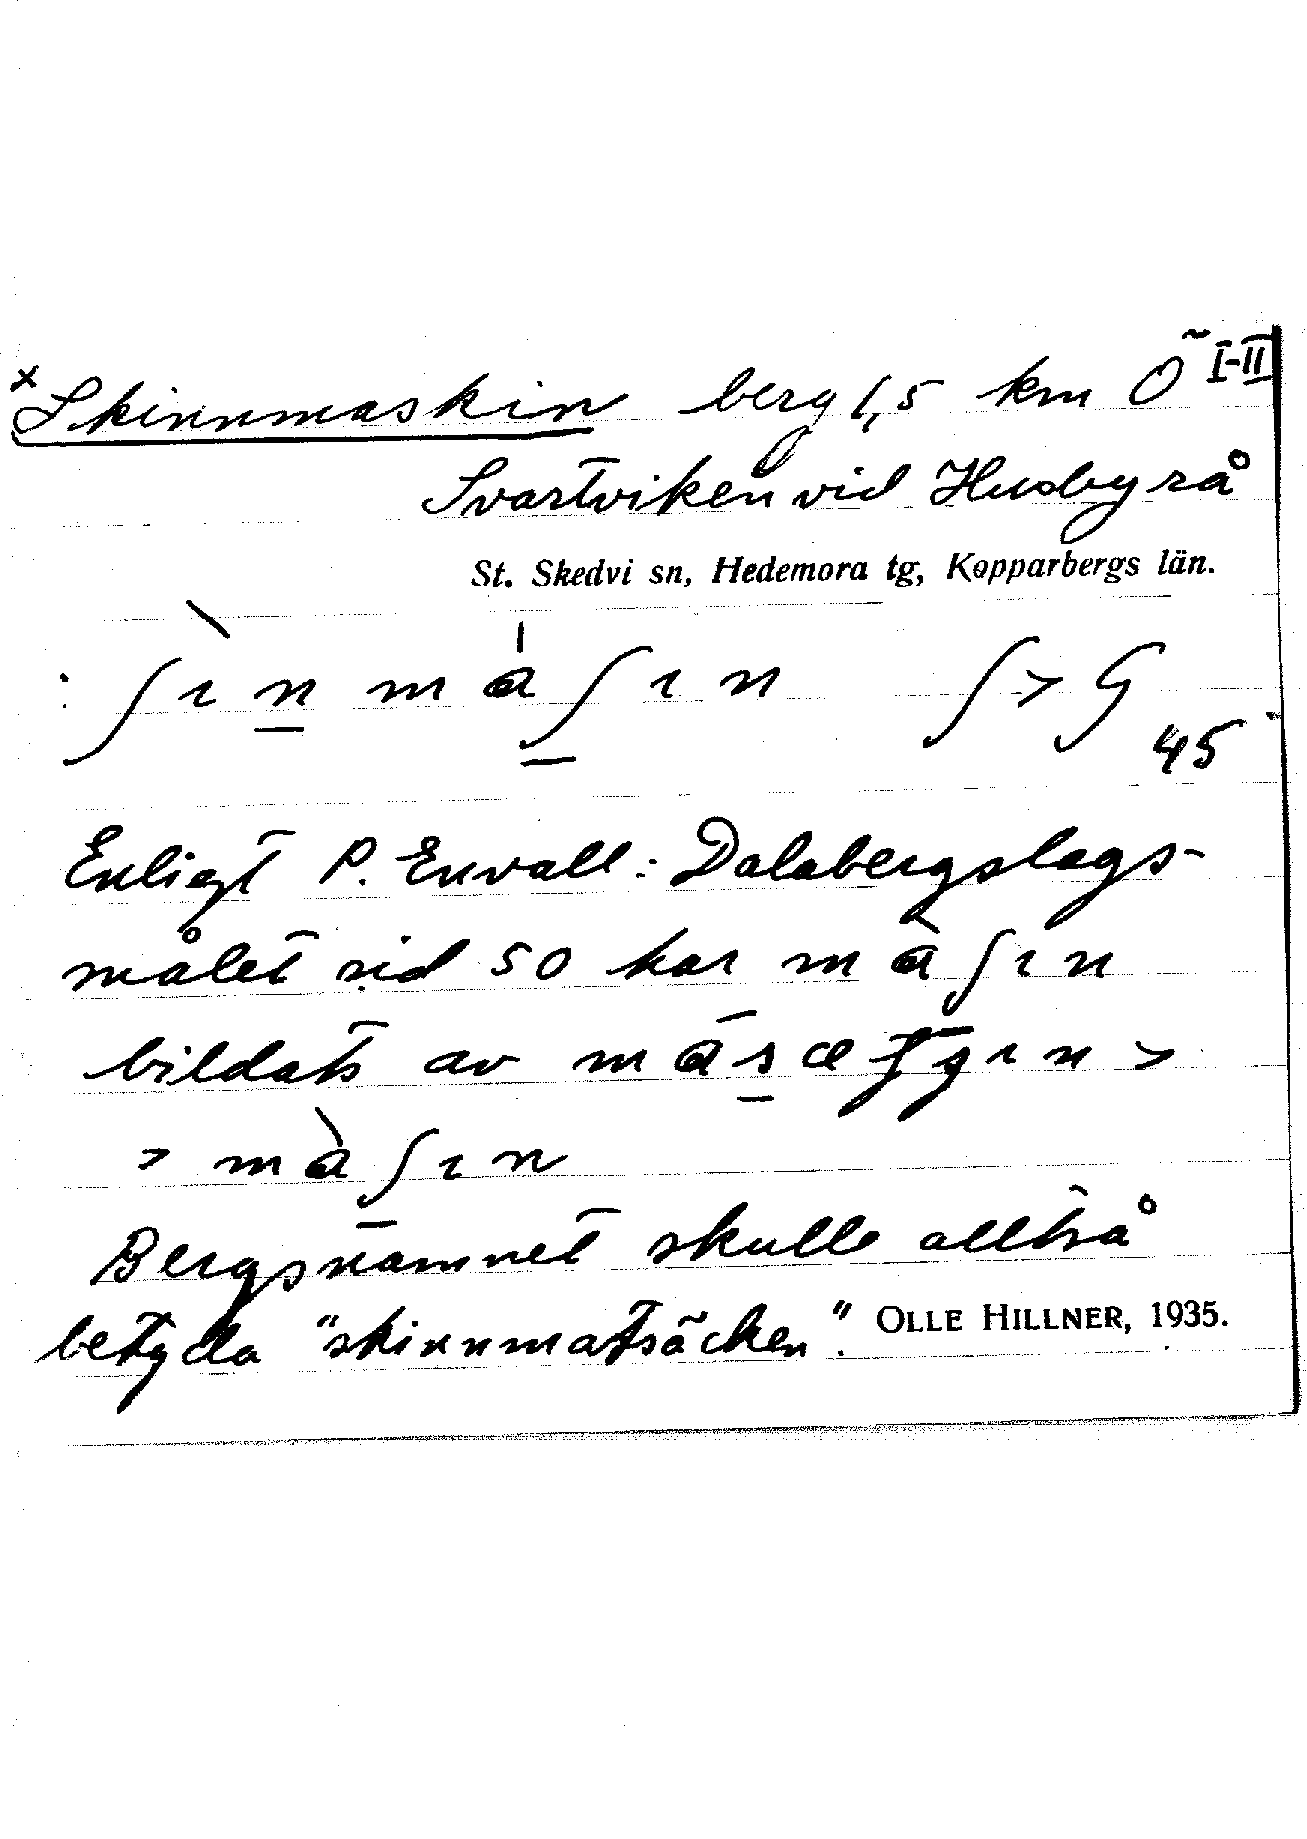 × Skinnmaskin berg 1,5 km Ö I-II
Svartviken vid Husbyrå
St. Skedvi sn, Hedemora tg, Kopparbergs län.
: ʃìn̲ má ʃ̲ın ʃ > 
45
Enligt P. Envall: Dalabergslags-
målet sid 50 har màʃın
bildats av >
> màʃ̲ın
Bergsnamnet skulle alltså
betyda "skinnmatsäcken". OLLE HILLNER, 1935.